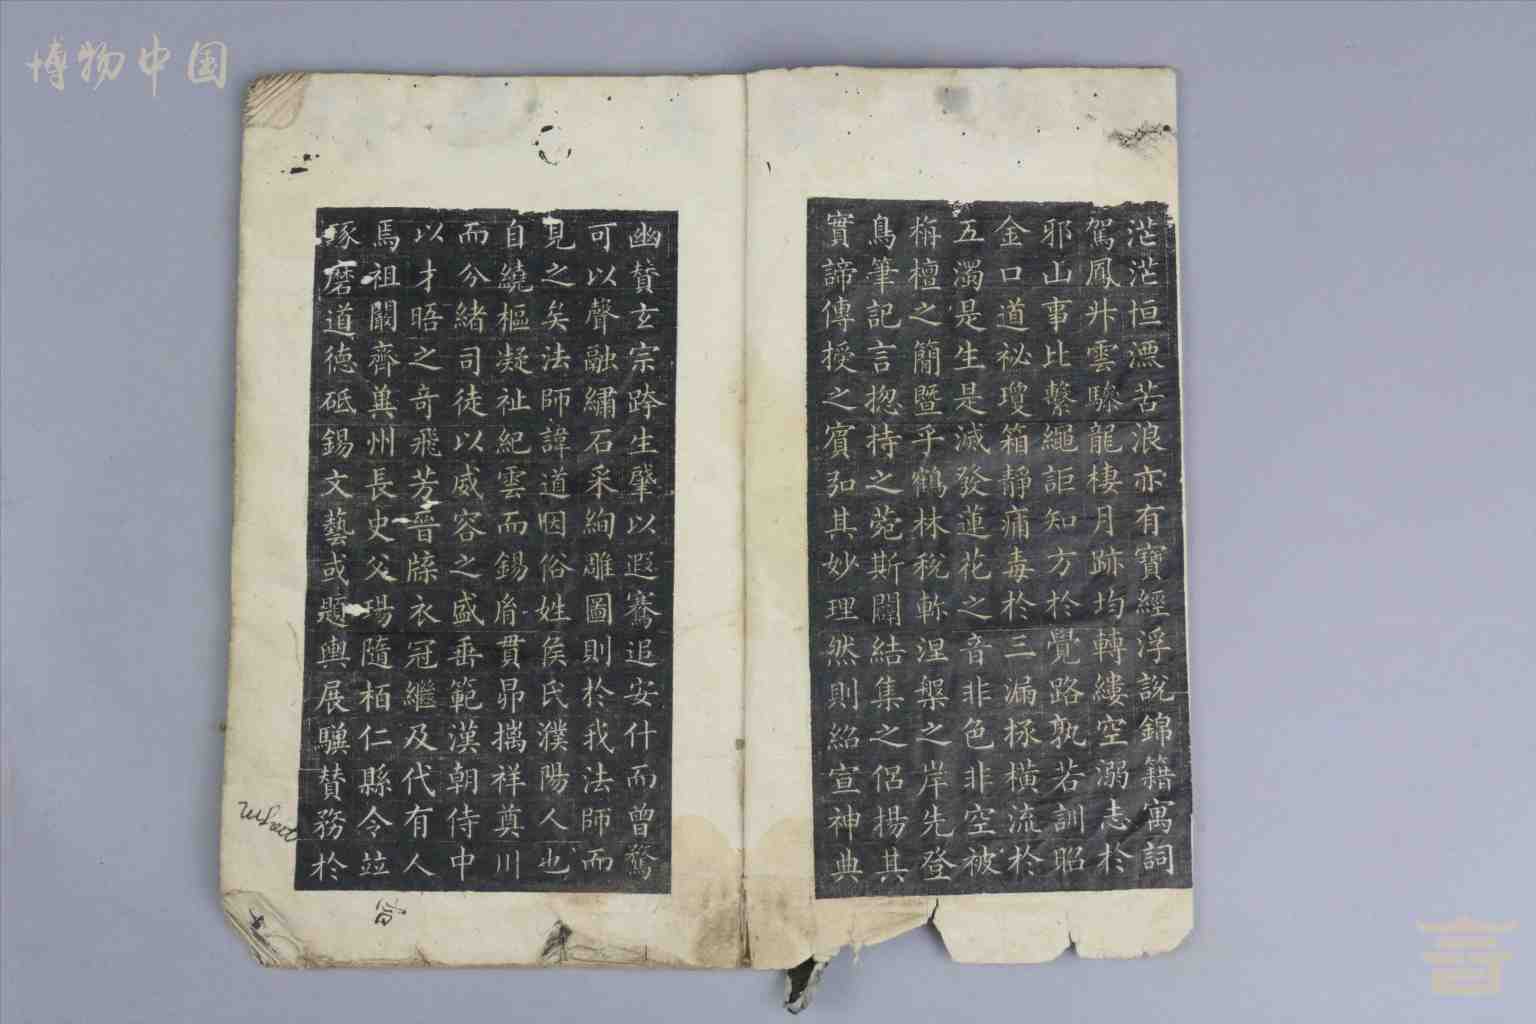 博物中国
茫茫恒漂苦浪亦有寶經浮說錦籍寓詞
駕鳳升雲驂龍棲月跡均轉縷空溺志於
邪山事比繫繩詎知方於覺路孰若訓昭
金口道祕瓊箱靜痛毒於三漏拯橫流於
五濁是生是滅發蓮花之音非色非空被
栴檀之簡暨乎鶴林稅斬涅槃之岸先登
鳥筆記言揔持之菀斯闢結集之侶揚其
實諦傳授之賓弘其妙理然則紹宣神典
幽贊玄宗跨生肇以遐騫追安什而曾騖
可以聲融繡石采絢雕圖則於我法師而
見之矣法師諱道因俗姓侯氏濮陽人也
自繞樞凝祉紀雲而錫胤貫昴摛祥奠川
而分緒司徒以威容之盛垂範漢朝侍中
以才晤之奇飛芳晉牒衣冠繼及代有人
焉祖闞齊冀州長史父瑒隨栢仁縣令竝
琢磨道德砥錫文藝或題輿展驥贊務於